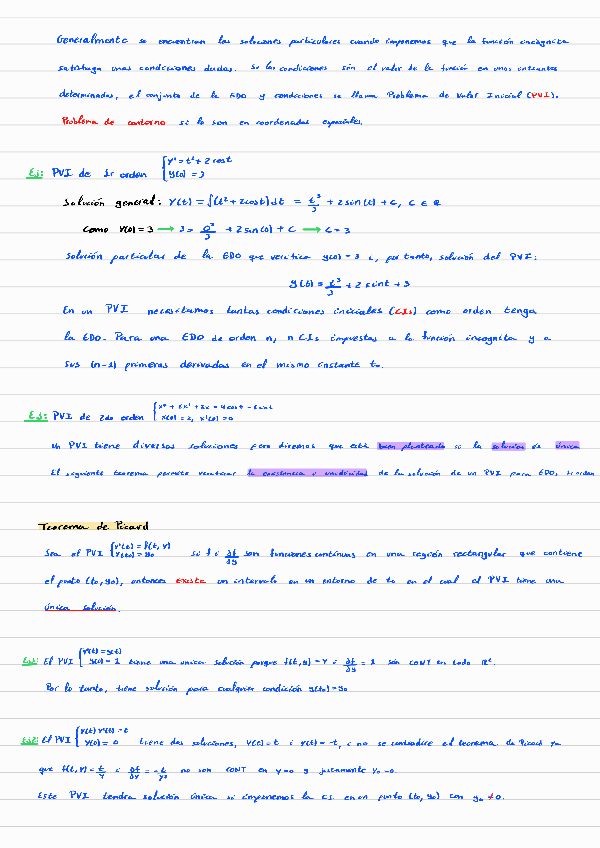 Generalmente se encuentran las soluciones particulares cuando imponemos que la función incógnita
satisfaga unas condiciones dadas. Si las condiciones són el valor de la función en unos instantes
determinados, el conjunto de la EDO y condiciones se llama Problema de Valor Inicial (PVI).
Problema de contorno si lo son en coordenadas espaciales.
Ej: PVI de 1r orden { y' = t² + 2cost
y(0) = 3
Solución general: y(t) = ∫(t² + 2cost)dt = t³/3 + 2sin(t) + C, C ∈ ℝ
Como y(0) = 3 → 3 = 0³/3 + 2sin(0) + C → C = 3
Solución particular de la EDO que verifica y(0) = 3 i, por tanto, solución del PVI:
y(t) = t³/3 + 2sint + 3
En un PVI necesitamos tantas condiciones iniciales (CIs) como orden tenga
la EDO. Para una EDO de orden n, n CIs impuestas a la función incognita y a
sus (n-1) primeras derivadas en el mismo instante t₀.
Ej: PVI de 2do orden {
x(0) = 2, x'(0) = 0
Un PVI tiene diversas soluciones pero diremos que está bien planteado si la solución es única
El siguiente teorema permite verificar la existencia y unicidad de la solución de un PVI para EDOs 1r orden
Teorema de Picard
Sea el PVI { y'(t) = f(t, y)
y(t₀) = y₀ si f i ∂f/∂y son funciones continuas en una región rectangular que contiene
el punto (t₀, y₀), entonces existe un intervalo en un entorno de t₀ en el cual el PVI tiene una
única solución.
Ej1: El PVI { y'(t) = y(t)
y(0) = 1 tiene una unica solución porque f(t,y) = y i ∂f/∂y = 1 són CONT en todo ℝ².
Por lo tanto, tiene solución para cualquier condición y(t₀) = y₀
Ej2: El PVI { y(t) y'(t) = t
y(0) = 0 tiene dos soluciones, y(t) = t i y(t) = -t, i no se contradice el teorema de Picard ya
que f(t, y) = t/y i ∂f/∂y = -t/y² no son CONT en y=0 y justamente y₀ = 0.
Este PVI tendra solución única si imponemos la CI en un punto (t₀, y₀) con y₀ ≠ 0.